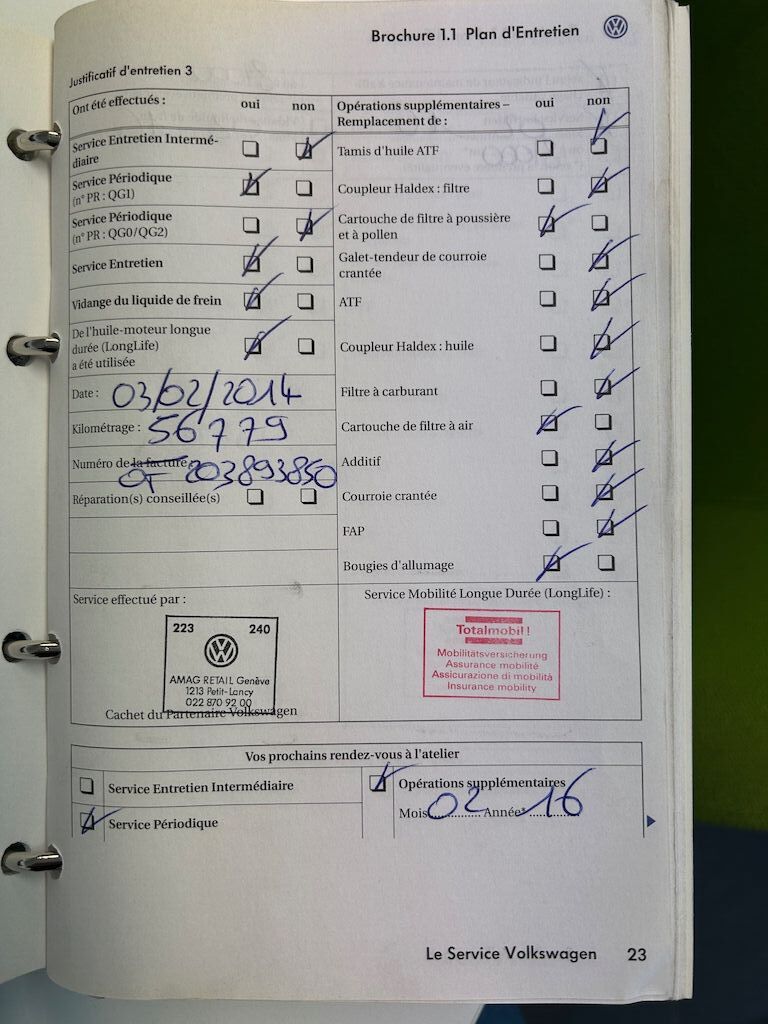 Brochure 1.1 Plan d'Entretien
Justificatif d'entretien 3
Ont été effectués : oui non
Service Entretien Intermé-
diaire
Service Périodique
(n° PR : QG1)
Service Périodique
(n° PR : QG0/QG2)
Service Entretien
Vidange du liquide de frein
De l'huile-moteur longue
durée (LongLife)
a été utilisée
Date : 03/02/2014
Kilométrage : 56779
Numéro de la facture :
OT 203893850
Réparation(s) conseillée(s)
Opérations supplémentaires – oui non
Remplacement de :
Tamis d'huile ATF
Coupleur Haldex : filtre
Cartouche de filtre à poussière
et à pollen
Galet-tendeur de courroie
crantée
ATF
Coupleur Haldex : huile
Filtre à carburant
Cartouche de filtre à air
Additif
Courroie crantée
FAP
Bougies d'allumage
Service effectué par :
223 240
AMAG RETAIL Genève
1213 Petit-Lancy
022 870 92 00
Cachet du Partenaire Volkswagen
Service Mobilité Longue Durée (LongLife) :
Totalmobil!
Mobilitätsversicherung
Assurance mobilité
Assicurazione di mobilità
Insurance mobility
Vos prochains rendez-vous à l'atelier
Service Entretien Intermédiaire
Service Périodique
Opérations supplémentaires
Mois 02 Année* 16
Le Service Volkswagen 23